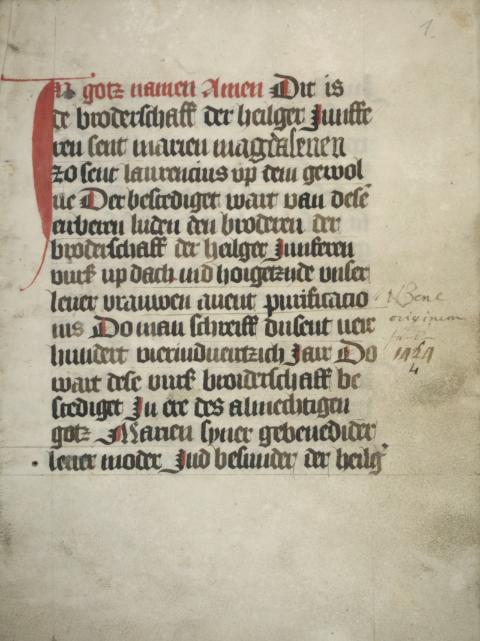 1.
In gotz namen Amen Dit is
de broderschaff der heilger Junffe
ren sent marien magdalenen
zo sent laurencius vp dem gewol
ue Der bestediget wart van dese
erberen luden den broderen der
broderschaff der heilger Junferen
vurß up dach ind hoigetzide unser
lieuer vrauwen auent purificatio
nis Do man schreiff dusent veir
hundert vierinduentzich Jair Do
wart dese vurß broiderschaff be
stediget In ere des almechtigen
gotz Marien syner gebenedider
leuer moder Ind besunder der heilg
NBene
originem
1424
4